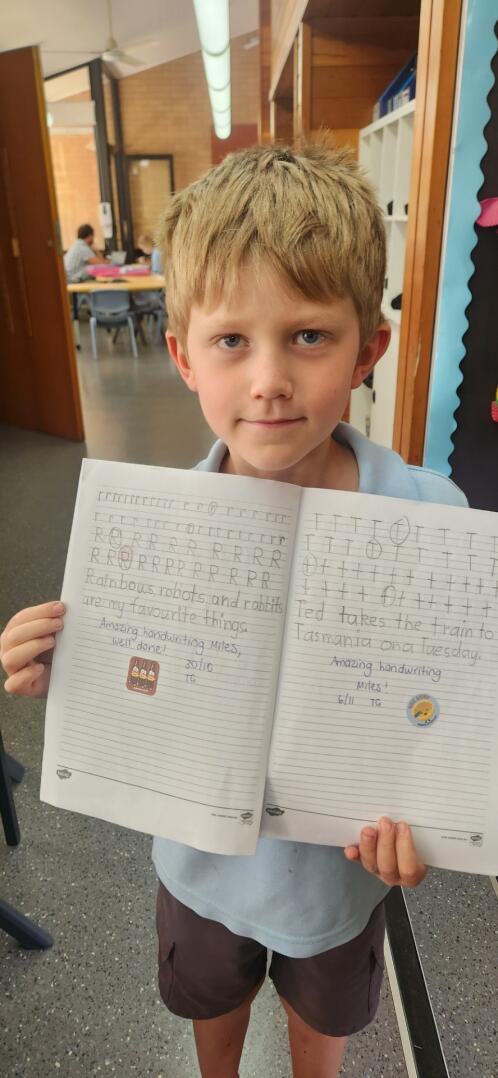 r r r r r r r r r r r r r r r r r r r
r r r r r r r r r r r r r r r
R R R R R R R R R R R
R R R R R R R R R R R
Rainbows, robots and rabbits
are my favourite things.
Amazing handwriting Miles,
well done! 30/10
TG
T T T T T T T T T
T T T T T T T T T
t t t t t t t t t t t
t t t t t t t t t t t
Ted takes the train to
Tasmania on a Tuesday.
Amazing handwriting
Miles!
6/11 TG